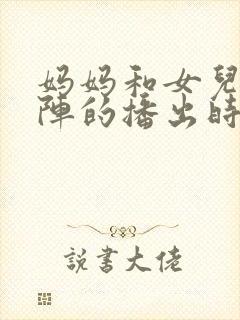 妈妈和女兒
陣的播出時
説書大佬